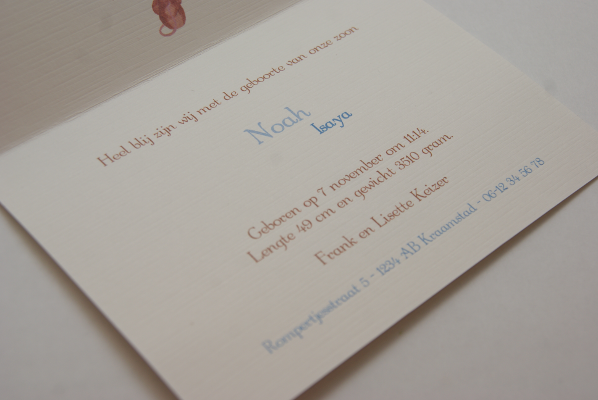 Heel blij zijn wij met de geboorte van onze zoon
Noah
Isaya
Geboren op 7 november om 11:14.
Lengte 49 cm en gewicht 3510 gram.
Frank en Lisette Keizer
Rompertjesstraat 5 - 1234 AB Kraamstad - 06-12 34 56 78